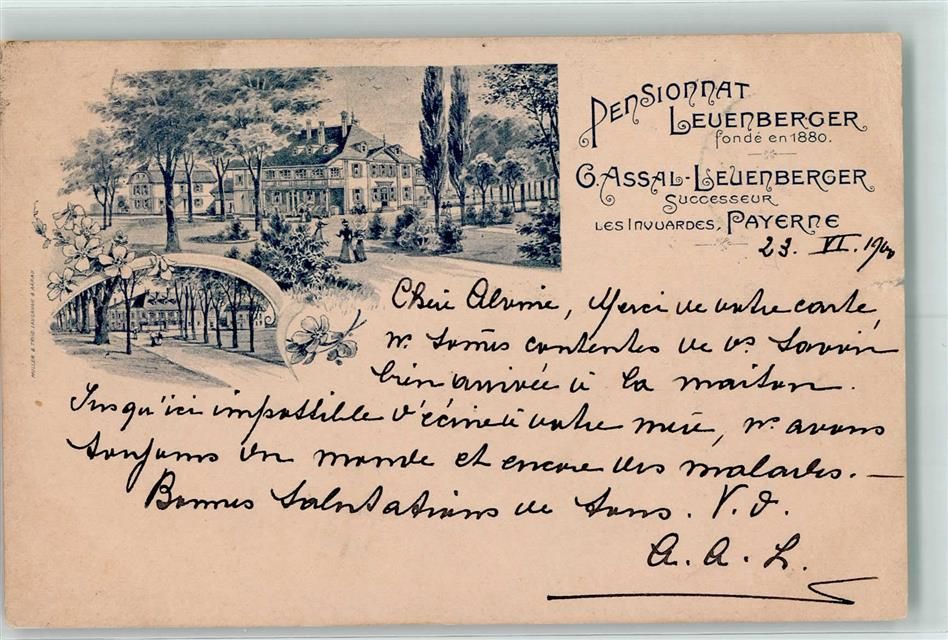 PENSIONNAT
LEUENBERGER
fondé en 1880.
G. ASSAL-LEUENBERGER
SUCCESSEUR
LES INVUARDES, PAYERNE
23. VI. 1900
Chère Alvine, Merci de votre carte,
ns. sommes contentes de vs. savoir
bien arrivée à la maison.
Jusqu'ici impossible d'écrire à votre mère, ns. avons
toujours du monde et encore des malades. —
Bonnes salutations de tous. V. d.
A. A. L.
MULLER & TRÜB LAUSANNE & AARAU